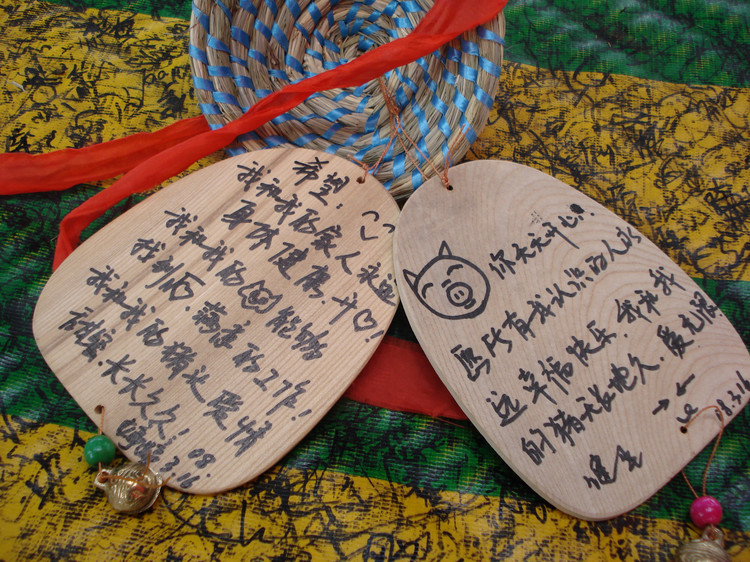 希望:
我和我的家人永远
身体健康,开心!
我和我的 能够
找到 满意的工作!
我和我的猪头爱情
甜蜜,长长久久!
08.
3.16
你天天开心!
愿所有我认识的人永
远幸福快乐,我和我
的猪天长地久,爱无限
08.3.16